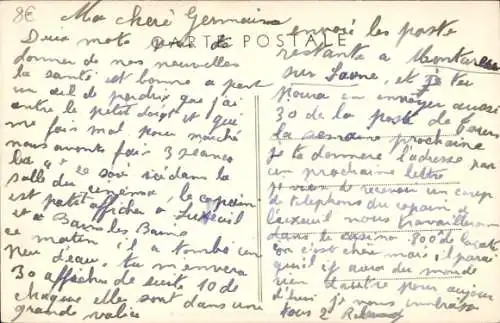 8€
Ma chère Germaine
CARTE POSTALE
Deux mots pour te
donner de nos nouvelles
la santé est bonne a part
un œil de perdrix que j'ai
entre le petit doigt et qui
me fais mal pour marché
nous avons fais 3 seance
la "4" ce soir ici dans la
salle du cinéma, le copain
est patit affiche a Luxeuil
et a Bains les Bains
ce matin il a tombé un
peu d'eau, tu m'envera
30 affiches de suite 10 de
chaque elle sont dans une
grande valise
envoié les poste
restante a
sur Saone, et je te
poura en envoyer aussi
30 de la poste de
la semaine prochaine
je te donnere l'adresse par
un prochaine lettre
je vien de recevoir un coup
de telephone du copain de
Luxeuil nous travaillerons
dans le casino 800f de
on c'est chère mais il parai
qu'il if aura du monde
rien d'autre pour aujour
d'hui je nous embrasse
tous 2